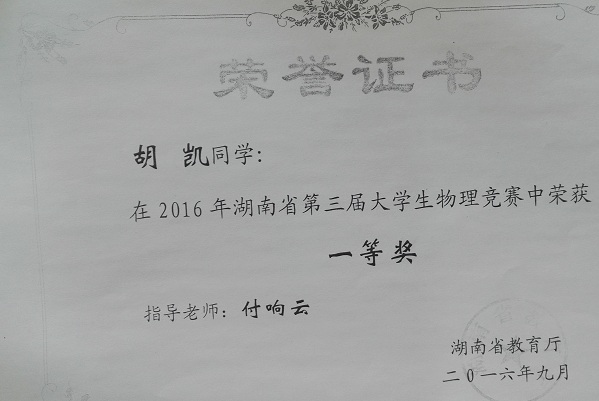 荣誉证书
胡 凯同学:
在2016年湖南省第三届大学生物理竞赛中荣获
一等奖
指导老师: 付响云
湖南省教育厅
二〇一六年九月